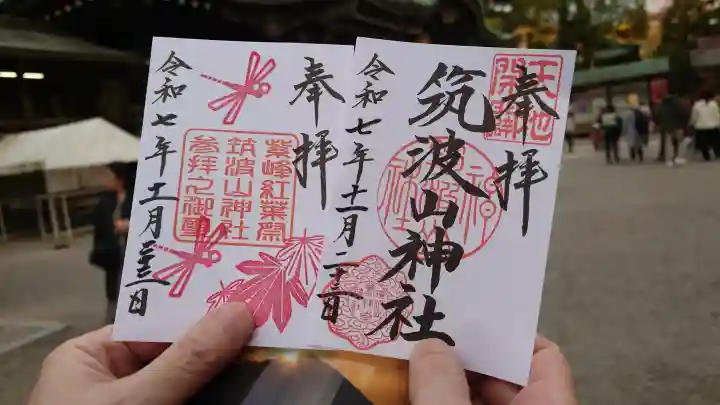 奉拝
筑波山神社
令和七年十一月二十三日
天地開闢
奉拝
紫峰紅葉祭
筑波山神社
参拝之御璽
令和七年十一月二十三日